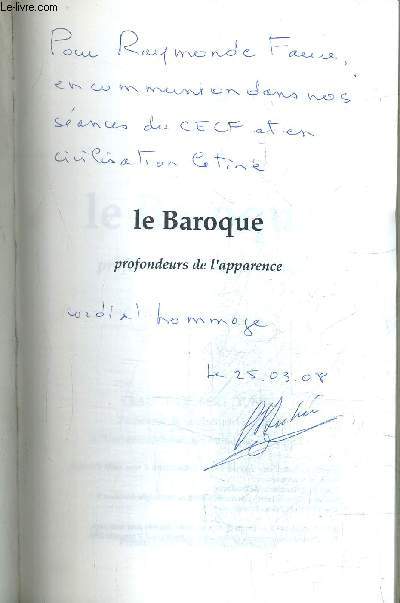 Le-livre.com
Pour Raymonde Faure,
en communion dans nos
séances du CECF et en
civilisation latine
le Baroque
profondeurs de l'apparence
cordial hommage
Le 25.03.08